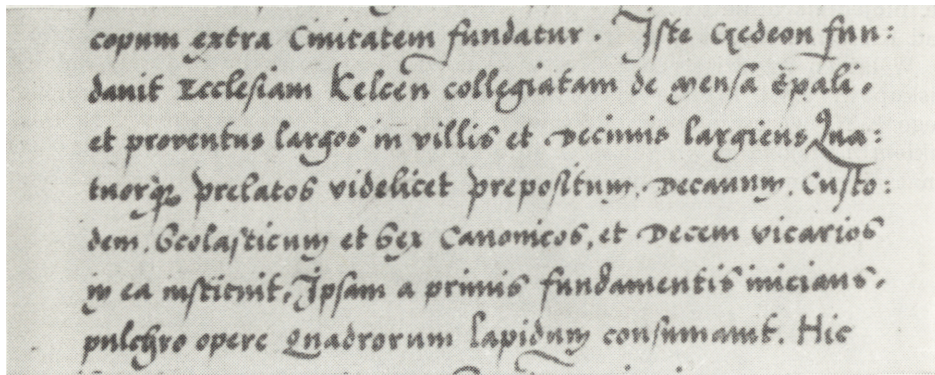 copum extra Ciuitatem fundatur. Iste Gedeon fun:
dauit Ecclesiam Kelcen collegiatam de mensa ep̄ali,
et prouentus largos in villis et Decimis largiens Qua:
tuorq̃ prelatos videlicet prepositum, Decanum, Custo:
dem, Scolasticum et Sex Canonicos, et Decem vicarios
in ea instituit, Ipsam a primis fundamentis inicians,
pulchro opere Quadrorum lapidum consumauit. Hic